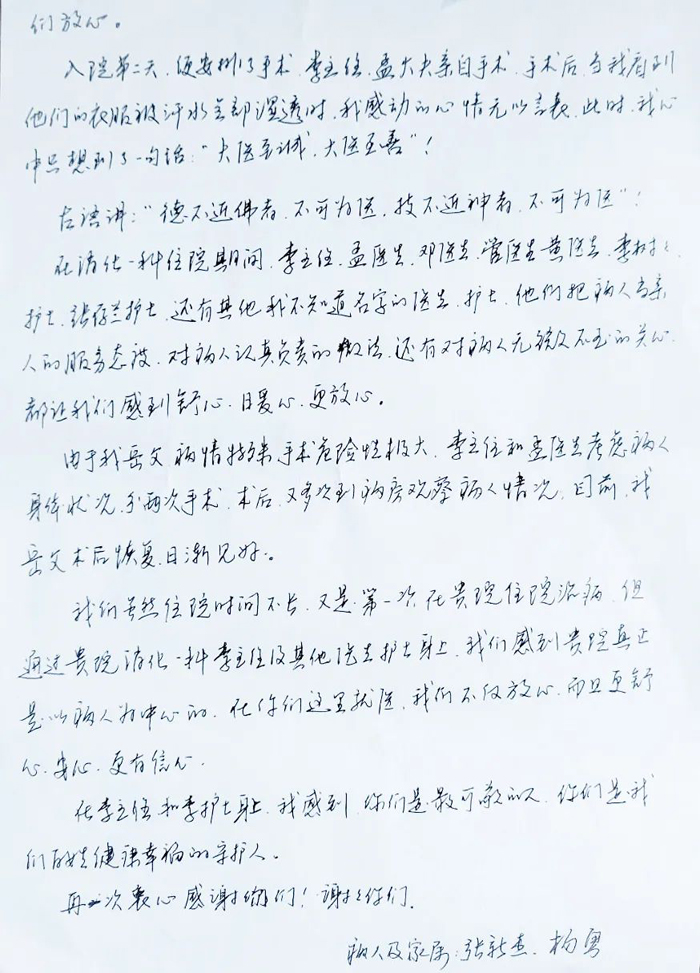 们放心。
入院第二天，便安排了手术，李主任、孟大夫亲自手术，手术后，当我看到
他们的衣服被汗水全部湿透时，我感动的心情无以言表，此时，我心
中只想到了一句话：“大医至诚，大医至善”！
古语讲：“德不近佛者，不可为医，技不近神者，不可为医”！
在消化一科住院期间，李主任、孟医生、邓医生、管医生、黄医生、李树
护士、张存兰护士，还有其他我不知道名字的医生、护士，他们把病人当亲
人的服务态度，对病人认真负责的做法，还有对病人无微不至的关心，
都让我们感到舒心、暖心、更放心。
由于我岳父病情特殊，手术危险性极大，李主任和孟医生考虑病人
身体状况，分两次手术，术后，又多次到病房观察病人情况，目前，我
岳父术后恢复，日渐见好。
我们虽然住院时间不长，又是第一次在贵院住院治病，但
通过贵院消化一科李主任及其他医生护士身上，我们感到贵院真正
是以病人为中心的，在你们这里就医，我们不仅放心，而且更舒
心、安心、更有信心。
在李主任和李护士身上，我感到，你们是最可敬的人，你们是我
们百姓健康幸福的守护人。
再次衷心感谢你们！谢谢你们。
病人及家属：张新